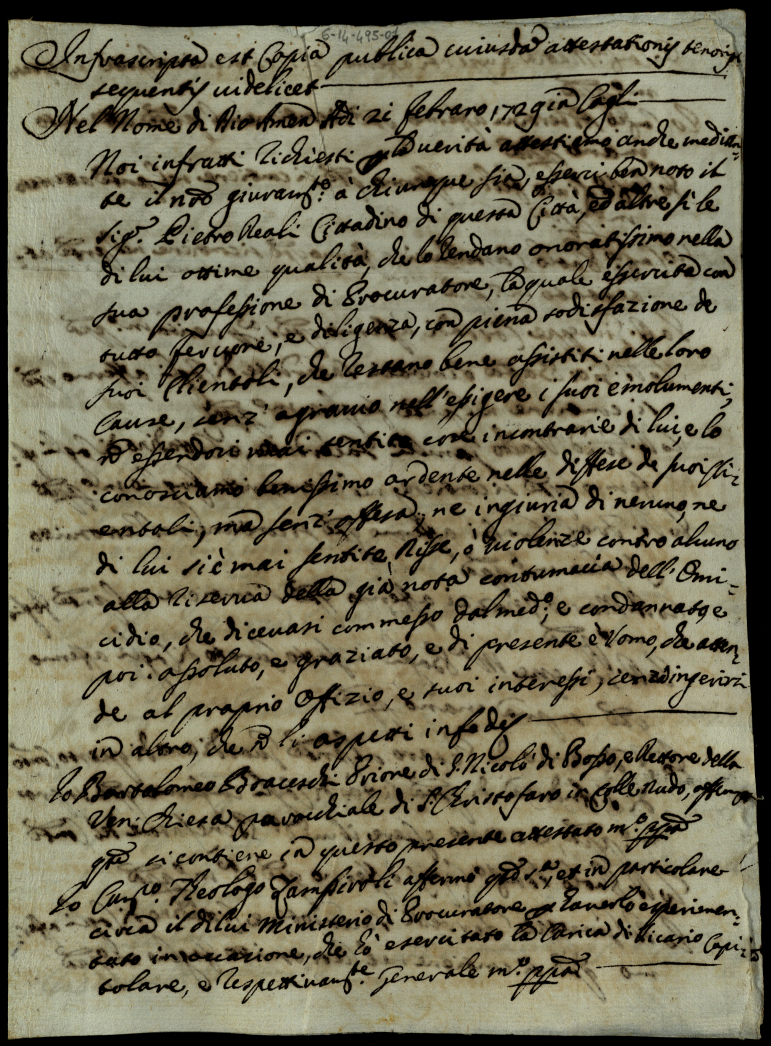 6-14-495-0
Infrascripta est Copia publica cuiusdã attestationis tenoris
sequentis videlicet
Nel Nome di Dio Amen Adi 21 febraro 1729 in Cagli
Noi infratti richiesti p la verità attestiamo anche median-
te il nõo giuramto. à chiunque sia, esserci ben noto il
Sigr. Pietro Reali Cittadino di questa Città, ed altre sì le
di lui ottime qualità, che lo rendano onoratissimo nella
sua professione di Procuratore, la quale essercita con
tutto fervore, e diligenza, con piena sodisfazione de
suoi Clientoli, che restano bene assistiti nelle loro
Cause, senz' agravio nell'essigere i suoi emolumenti,
nõ essendosi mai sentite cose incontrarie di lui, e lo
conosciamo benissimo ardente nelle diffese de suoi Cli-
entoli, mà senz' offesa, ne ingiuria di neruno, ne
di lui si è mai sentite, Risse, ò violenze contro alcuno
alla riserva della già nota contumacia dell' Omi-
cidio, che dicevasi commesso dal medo., e condannato, e
poi assoluto, e graziato, e di presente è Uomo, che atten-
de al proprio Offizio, e suoi interessi, senza ingerirsi
in altro, che nõ li aspetti in fede
Io Bartolomeo Braceschi Priore di S. Nicolò di Bosso, e Rettore della
Ven: Chiesa parochiale di S. Christofaro in Colle Rudo, affermo
qto si contiene in questo presente attestato mo. ppa
Io Canco. Teologo Zampiroli affermo qto sa., et in particolare
circa il di lui Ministerio di Procuratore p haverlo esperimen-
tato in occasione, che hò esercitato la Carica di Vicario Capi-
tolare, e respettivamte. Generale mo. ppa